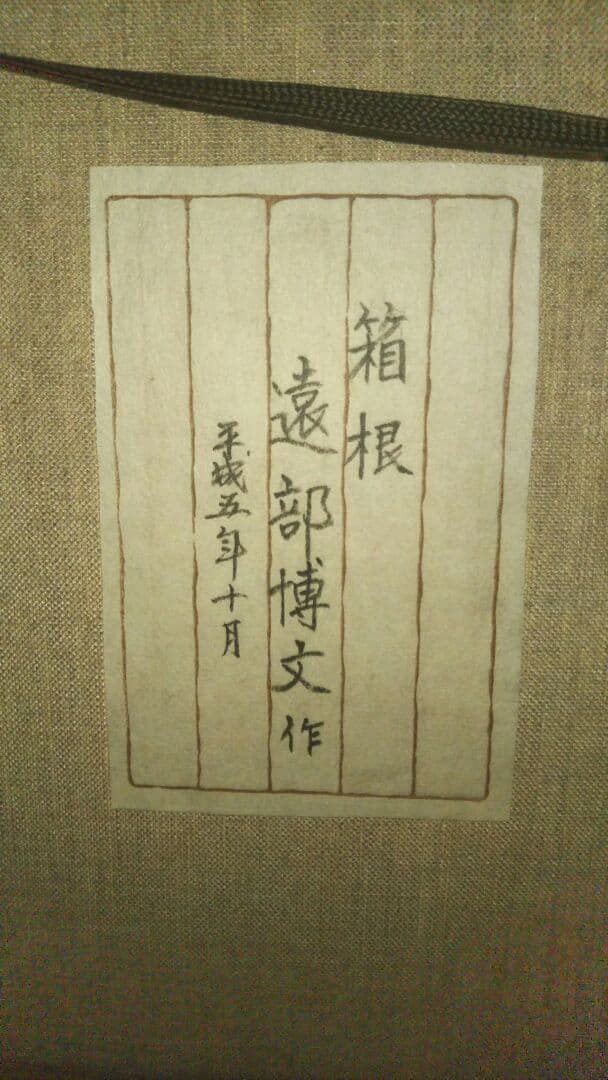 箱根
遠部博文作
平成五年十月